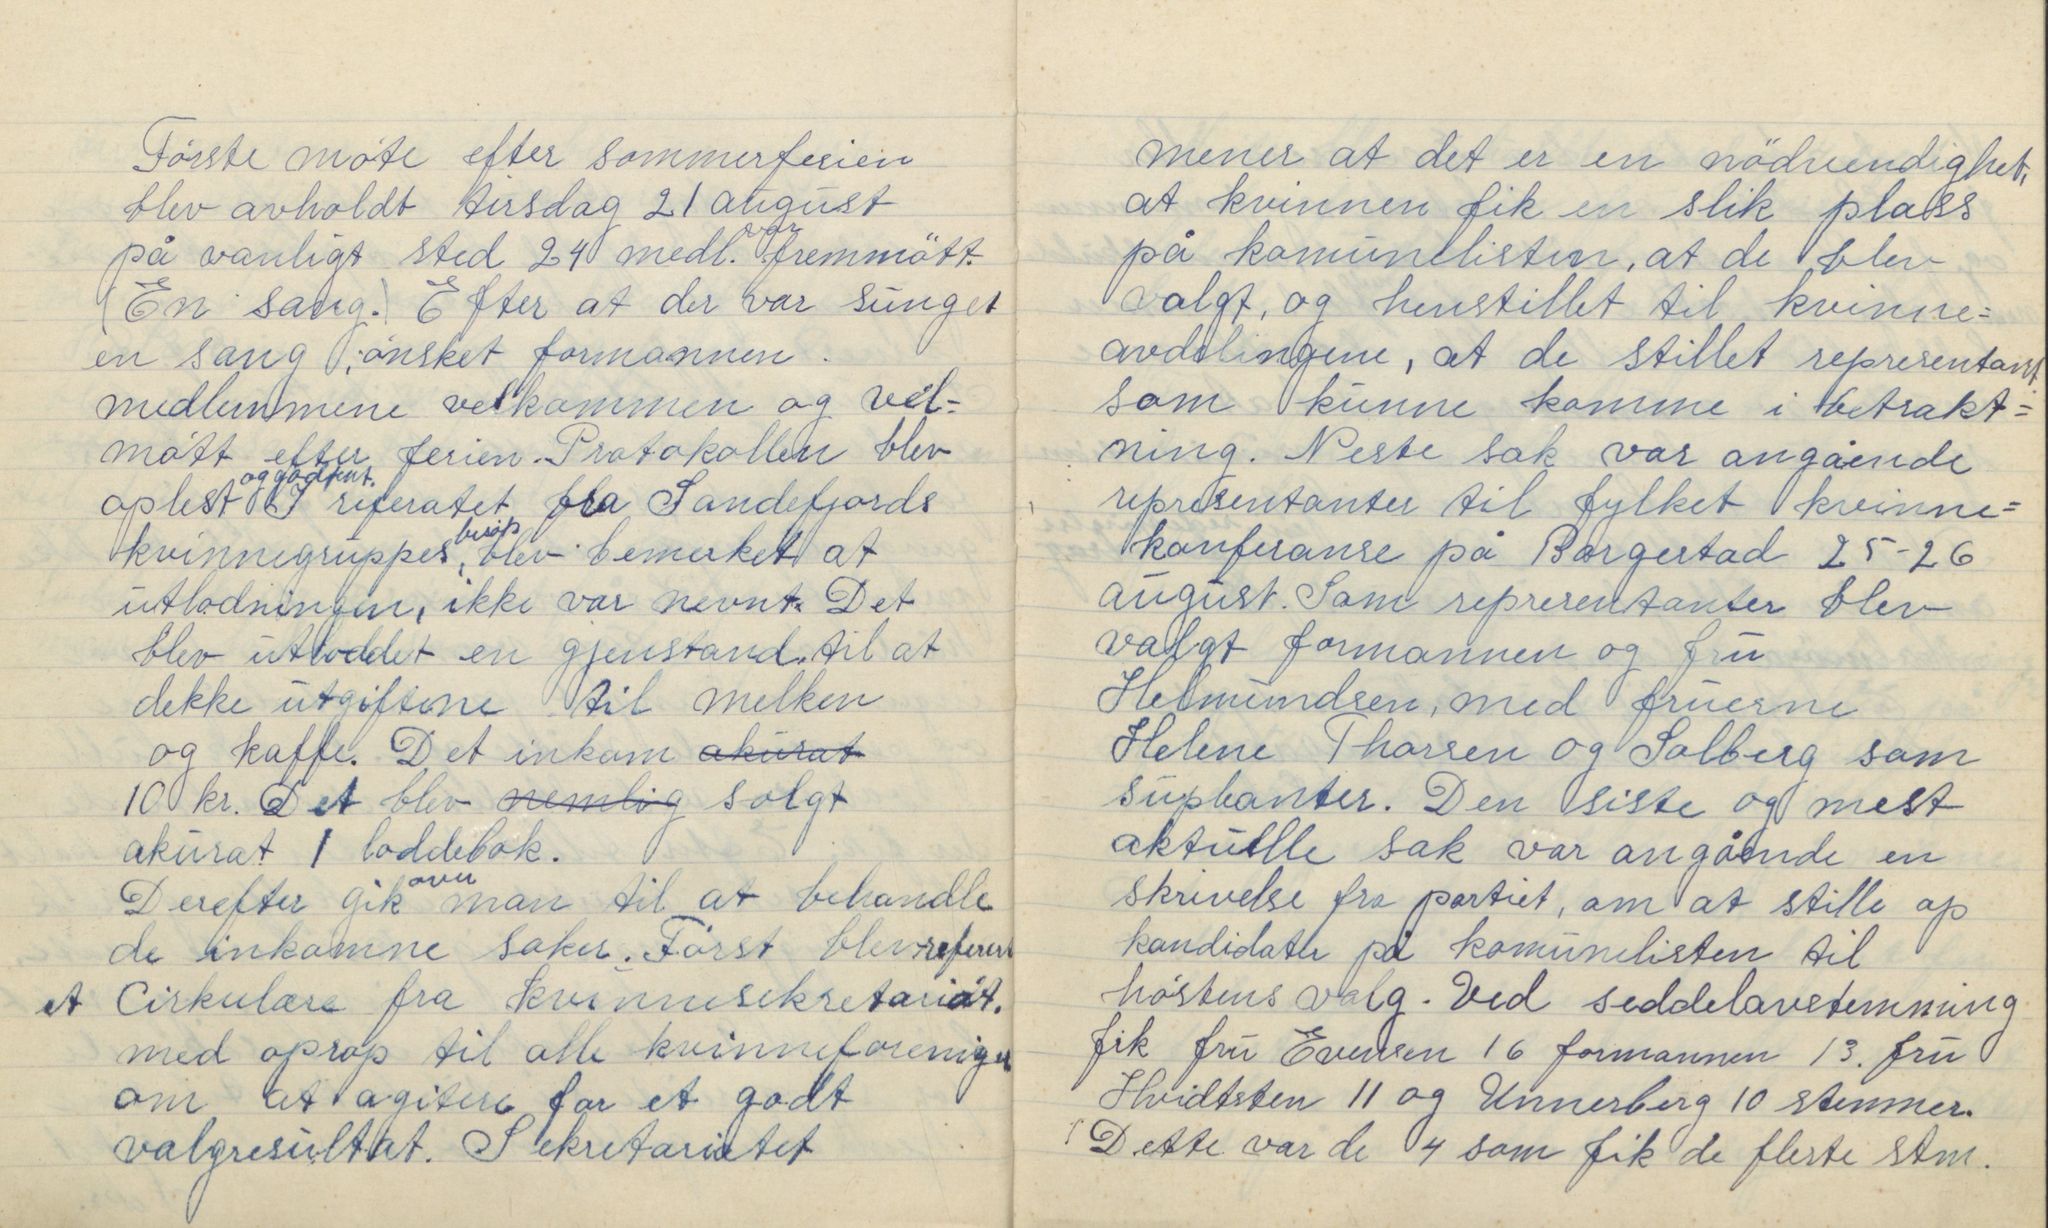 Förste möte efter sommerferien
blev avholdt tirsdag 21 august
på vanligt sted 24 medl. var fremmött.
(En sang.) Efter at der var sunget
en sang, önsket formannen
medlemmene velkommen og vel=
mött efter ferien. Protokollen blev
oplest og godkent. I referatet fra Sandefjords
kvinnegruppes besøp, blev bemerket at
utlodningen, ikke var nevnt. Det
blev utloddet en gjenstand til at
dekke utgiftene til melken
og kaffe. Det inkom akurat
10 kr. Det blev nemlig solgt
akurat 1 loddebok.
Derefter gik man over til at behandle
de inkomne saker. Först blev referert
et Cirkulære fra kvinnesekretariat.
med oprop til alle kvinneforeninger
om at agitere for et godt
valgresultat. Sekretariatet
mener at det er en nödvendighet,
at kvinnen fik en slik plass
på komunelisten, at de blev
valgt, og henstillet til kvinne=
avdelingene, at de stillet representant
som kunne komme i betrakt=
ning. Neste sak var angående
representanter til fylket kvinne=
konferanse på Borgestad 25-26
august. Som representanter blev
valgt formannen og fru
Helmundsen, med fruerne
Helene Thorsen og Solberg som
suplanter. Den siste og mest
aktuelle sak var angående en
skrivelse fra partiet, om at stille op
kandidater på komunelisten til
höstens valg. Ved seddelavstemning
fik fru Evensen 16 formannen 13. fru
Hvidtsten 11 og Unnerberg 10 stemmer.
Dette var de 4 som fik de fleste stm.